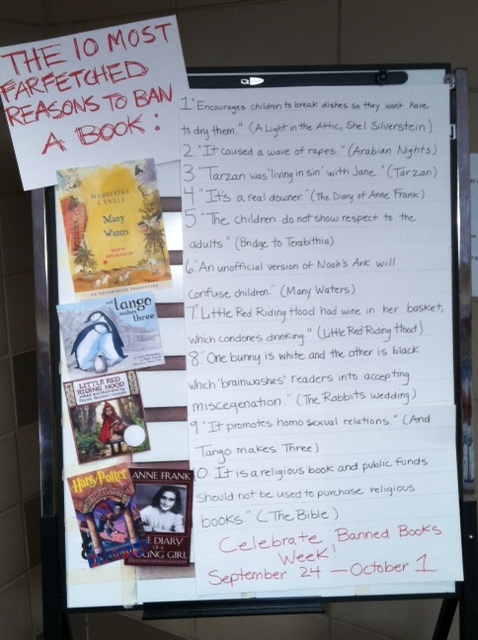 THE 10 MOST
FARFETCHED
REASONS TO BAN
A BOOK:
1. "Encourages children to break dishes so they won't have
to dry them." (A Light in the Attic, Shel Silverstein)
2. "It caused a wave of rapes." (Arabian Nights)
3. "Tarzan was 'living in sin' with Jane." (Tarzan)
4. "It's a real downer." (The Diary of Anne Frank)
5. "The children do not show respect to the
adults." (Bridge to Terabithia)
6. "An unofficial version of Noah's Ark will
confuse children." (Many Waters)
7. "Little Red Riding Hood had wine in her basket,
which condones drinking." (Little Red Riding Hood)
8. "One bunny is white and the other is black
which 'brainwashes' readers into accepting
miscegenation." (The Rabbits wedding)
9. "It promotes homo sexual relations." (And
Tango makes Three)
0. It is a religious book and public funds
should not be used to purchase religious
books." (The Bible)
Celebrate Banned Books
Week!
September 24 — October 1
MADELEINE
L'ENGLE
Many
Waters
AN UNABRIDGED
tango
makes
three
LITTLE RED
RIDING HOOD
Harry Potter
ANNE FRANK
THE DIARY
OF A
YOUNG GIRL